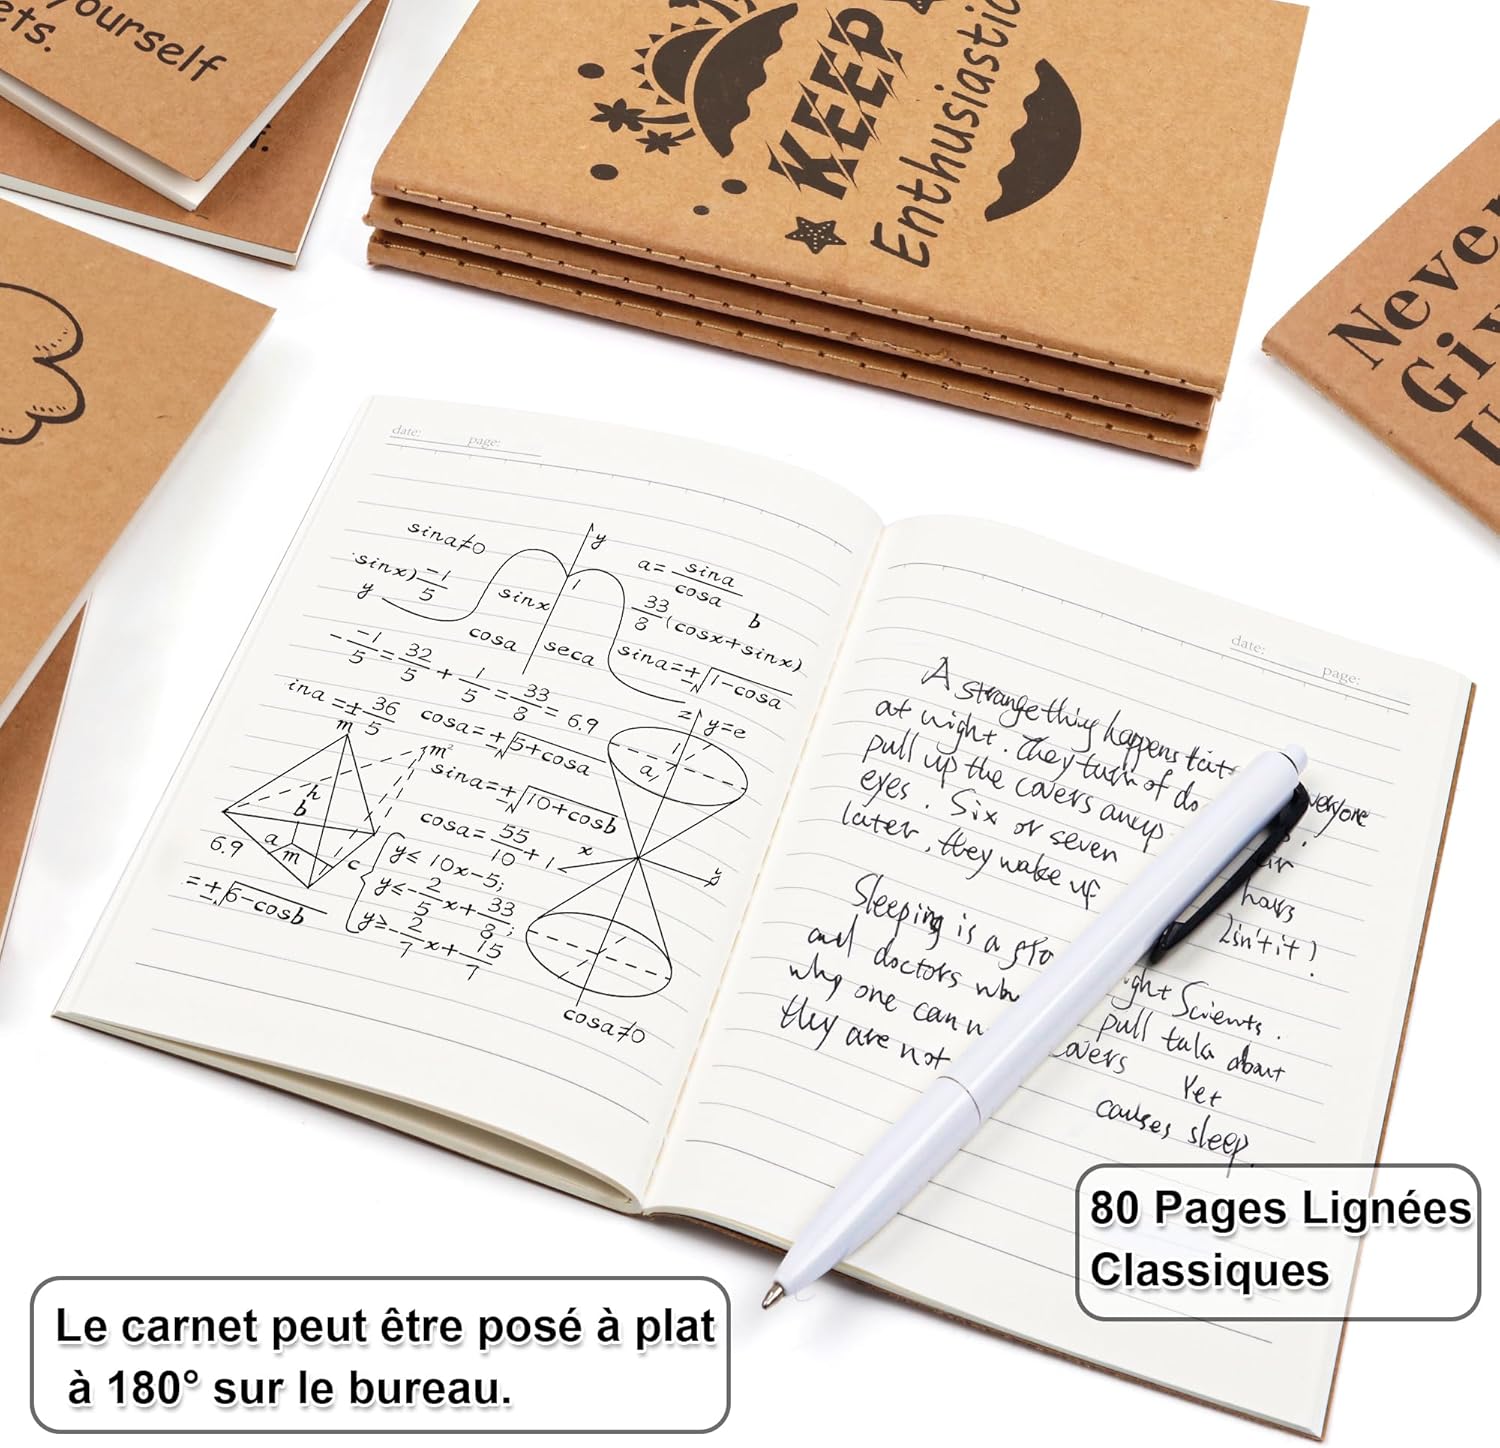 yourself
ets.
KEEP
Enthusiastic
Never
date: page:
sina≠0
y
a= sina/cosa
sinx) -1/5
y
sinx
1
33/8 (cosx+sinx)
b
cosa
seca
sina=±√1-cosa
- -1/5 = 32/5 + 1/5 = 33/8 = 6.9
ina =± 36/5
cosa=±√5+cosa
z
y=e
m
m²
1
a
sina=±√10+cosb
h
b
cosa= 55/10 +1
x
y
a
m
c
6.9
y≤ 10x-5;
y≤- 2/5 x+ 33/8;
y≥- 2/7 x+ 15/7
=±√6-cosb
cosa≠0
date: page:
A strange thing happens
at night. They turn of do
pull up the covers
eyes. Six or seven hours
later, they wake up
Sleeping is a
and doctors
why one can
they are not
Scients.
pull talk about
covers Yet
causes sleep.
80 Pages Lignées
Classiques
Le carnet peut être posé à plat
à 180° sur le bureau.